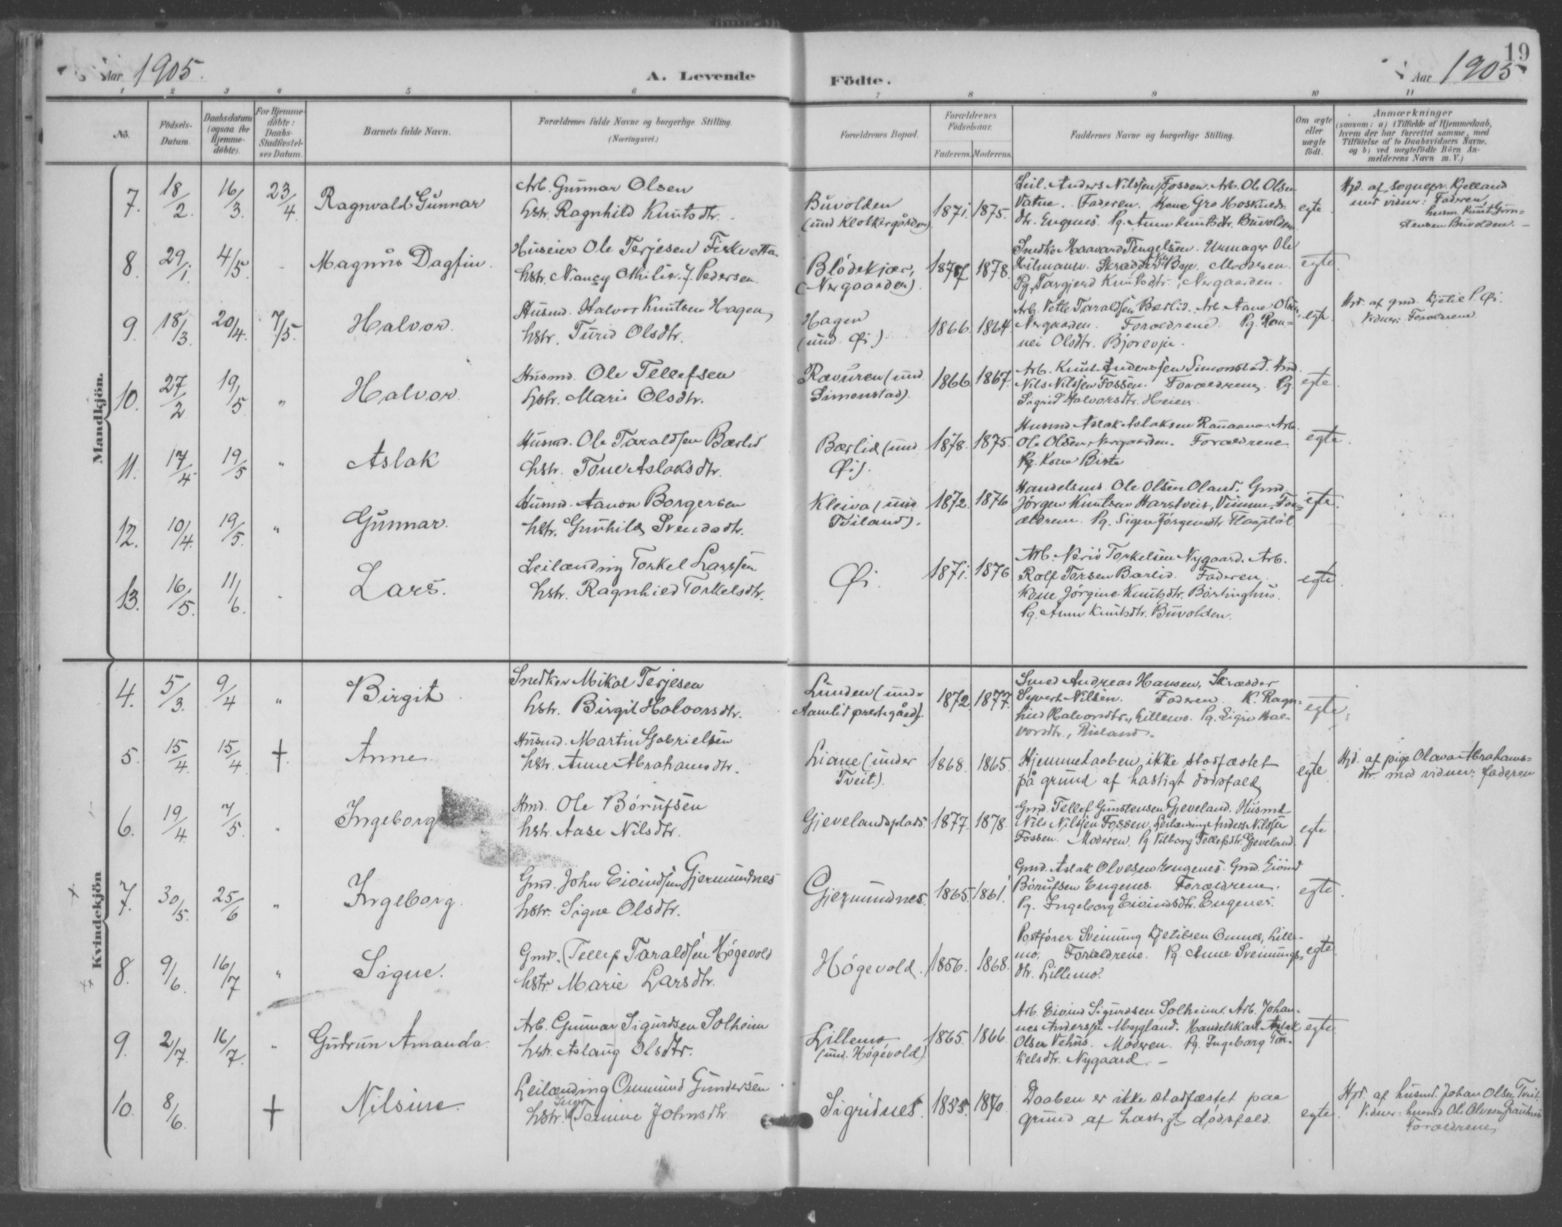 Aar 1905. A. Levende Fødte. Aar 1905 19
1 2 3 4 5 6 7 8 9 10 11
No. Fødsels-Datum. Daabsdatum (ogsaa for Hjemmedøbte). For Hjemmedøbte: Daabs-Stadfæstelses Datum. Barnets fulde Navn. Forældrenes fulde Navne og borgerlige Stilling. (Næringsvei.) Forældrenes Bopæl. Forældrenes Fødselsaar. Faderens. Moderens. Faddernes Navne og borgerlige Stilling. Om ægte eller uægte født. Anmærkninger
Mandkjøn.
7. 18/2 16/3. 23/4. Ragnvald Gunnar
Arb. Gunnar Olsen
hstr. Ragnhild Knutsdtr.
Buvolden
(und Klokkergården)
1871. 1875.
Leil. Anders Nilssen Fossen. Arb. Ole Olsen
Faderen. Kone Gro
Engenes. Pg. Anne Knutsdtr. Buvolden
egte
Hjd. af sognepr. Kjelland
med vidner: Faderen,
husm. Knut
Buvolden.
8. 29/1. 4/5. Magnus Dagfin.
Huseier Ole Terjesen Fiskvatta
hstr. Nancy Othilie J. Pedersen
Blødekjær,
(Nergaarden).
1878.
Snedker Haavard Tengelsen. Urmager Ole
Moderen.
Pg. Torgjerd Knutsdtr., Nergaarden.
egte.
9. 18/3. 20/4. 7/5. Halvor.
Husmd. Halvor Knutsen Hagen,
hstr. Turid Olsdtr.
Hagen
(und. Øi.)
1866. 1864
Arb. Vetle Taraldsen Bærlid. Arb. Aanon Olsen
Nergaarden. Forældrene. Pg. Ron-
nei Olsdtr. Bjorevja.
egte.
Hjd. af gmd. Kjetil P. Øi.
Vidner: Forældrene
10. 27/2 19/5. " Halvor
Husmd. Ole Tellefsen
hstr. Mari Olsdtr.
Røvuren (und
Simonstad).
1866 1867.
Arb. Knut Andersen Simonstad.
Nils Nilssen Fossen. Forældrene, Pg
Sigrid Halvorsdtr. Heien
egte.
11. 17/4. 19/5 " Aslak
Husmd. Ole Taraldsen Bærlid
hstr. Tone Aslaksdtr.
Bærlid (und
Øi).
1878. 1875.
Husmd Aslak Aslaksen. Arb.
Ole Olsen Nergaarden. Forældrene
Pg. Kone Birte
egte.
12. 10/4. 19/5. " Gunnar.
Husmd. Aanon Borgersen
hstr. Gunhild Svendsdtr.
Kleiva (und
1872. 1876
Handelsmd Ole Olsen Oland. Gmd.
Jørgen Knutsen Harstveit, For-
ældrene. Pg. Signe Jørgensdtr
egte.
13. 16/5. 11/6. Lars.
Leilænding Torkel Larssen
hstr. Ragnhild Torkelsdtr.
Øi.
1871. 1876
Arb. Neri Torkelsen Nygaard. Arb.
Rolf Torsen Bærlid. Faderen,
Kone Jørgine Knutsdtr. Børtinghus
Pg. Anne Knutsdtr. Buvolden.
egte.
Kvindekjøn
4. 5/3. 9/4 " Birgit
Snedker Mikal Terjesen
hstr. Birgit Halvorsdtr.
Lunden (under
Aamlid prestegård).
1872 1877.
Smed Andreas Hansen, Skrædder
Syvert Nilsen. Faderen. K. Ragn-
hild Halvorsdtr., Lillemo. Pg. Signe Hal-
vorsdtr., Risland.
egte.
5. 15/4. 15/4 † Anne
Husmd. Martin Gabrielsen
hstr. Anne Abrahamsdtr.
Liane (under
Tveit).
1868. 1865.
Hjemmedaaben, ikke stadfæstet
på grund af hastigt dødsfald,
egte
Hjd. af pige Olava Abrahams-
dtr. med vidner: faderen
6. 19/4 7/5. Ingeborg
Hmd. Ole Børufsen
hstr. Aase Nilsdtr.
Gjevelandsplads
1877. 1878.
Gmd. Tellef Gunstensen Gjeveland. Husmd
Nils Nilssen Fossen, Leilænding Anders Nilssen
Fossen. Moderen. Pg Vilborg Tellefsdtr Gjeveland.
egte
7. 30/5. 25/6 " Ingeborg.
Gmd. John Eivindsen Gjermundnes
hstr. Signe Olsdtr.
Gjermundnes.
1865. 1861.
Gmd. Aslak Olvesen Engenes. Gmd Eivind
Børufsen Engenes. Forældrene.
Pg. Ingeborg Eivindsdtr. Engenes
egte.
8. 9/6. 16/7 " Signe.
Gmd. (Tellef Taraldsen Høgevold
hstr. Marie Larsdtr.
Høgevold.
1856. 1868.
Postfører Sveinung Kjetilsen Omnes, Lille-
mo. Forældrene. Pg Anne Sveinungs-
dtr. Lillemo.
egte.
9. 2/7. 16/7. Gudrun Amanda.
Arb. Gunnar Sigurdsen Solheim
hstr. Aslaug Olsdtr.
Lillemo
(und. Høgevold)
1865. 1866.
Arb. Eivind Sigurdsen Solheim. Arb. Johan-
nes Anderssen Mygland. Handelskarl Aslak
Olsen Vehus. Moderen. Pg. Ingeborg Tor-
kelsdtr. Nygaard.
egte,
10. 8/6. † Nilsine.
Leilænding Ommund Gundersen
hstr. (Tomine Johnsdtr
Sigridnes.
1855. 1870.
Daaben er ikke stadfæstet paa
grund af hastigt dødsfald.
egte.
Hjd. af husmd. Johan Olsen Tveit.
Vidner: husmd Ole Olvesen
Forældrene,